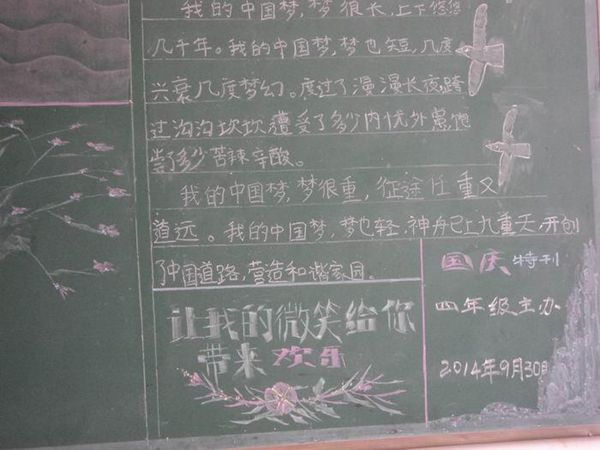 我的中国梦,梦很长,上下悠悠
几千年。我的中国梦,梦也短,几度
兴衰几度梦幻。度过了漫漫长夜,跨
过沟沟坎坎,遭受了多少内忧外患,饱
尝了多少苦辣辛酸。
我的中国梦,梦很重,征途任重又
道远。我的中国梦,梦也轻,神舟已上九重天,开创
了中国道路,营造和谐家园。
让我的微笑给你
带来欢乐
国庆特刊
四年级主办
2014年9月30日